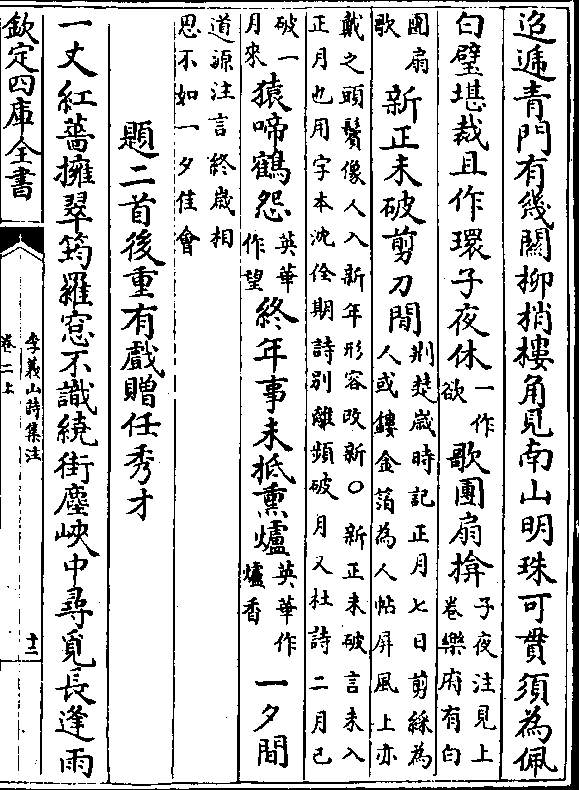 迢遞青門有幾關柳梢樓角見南山明珠可貫須為佩
白璧堪裁且作環子夜休一作欲歌團扇掩子夜注見上卷樂府有白
團扇歌新正未破剪刀間荆楚歲時記正月七日剪綵為人或鏤金箔為人帖屏風上亦
戴之頭鬢像人入新年形容改新○新正未破言未入
正月也用字本沈佺期詩別離頻破月又杜詩二月已
破一月來猿啼鶴怨英華作望終年事未抵熏爐英華作爐香一夕間
道源注言終歲相
思不如一夕佳會
題二首後重有戲贈任秀才
一丈紅薔擁翠筠羅窓不識繞街塵峽中尋覓長逢雨
欽定四庫全書
李義山詩集注
卷二上